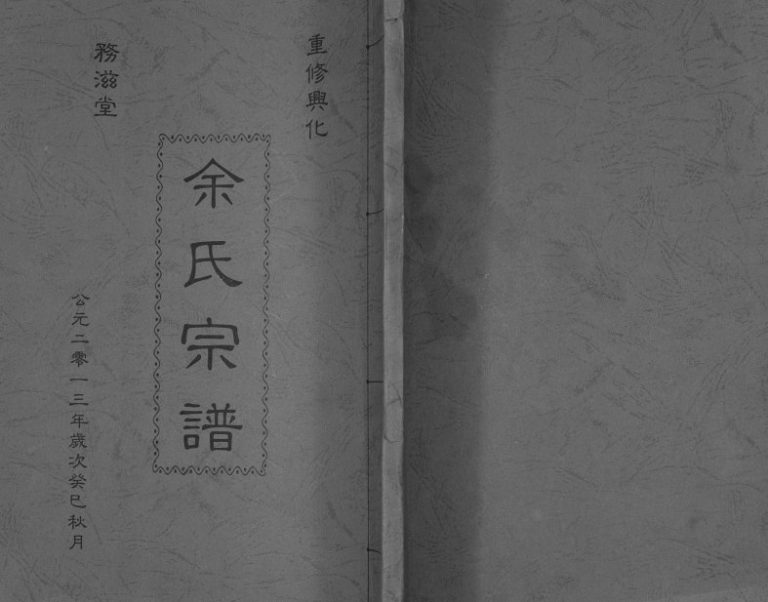 重修興化
余氏宗譜
務滋堂
公元二零一三年歲次癸巳秋月